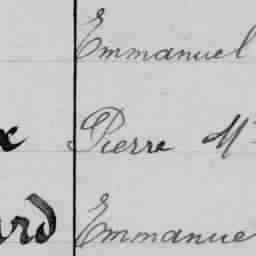 Emmanuel
x Pierre M
ard Emmanue